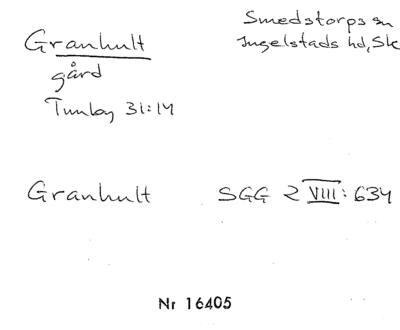 Granhult
Smedstorps sn
Ingelstads hd, Sk
gård
Tunby 31:14
Granhult SGG 2 VIII: 634
Nr 16405